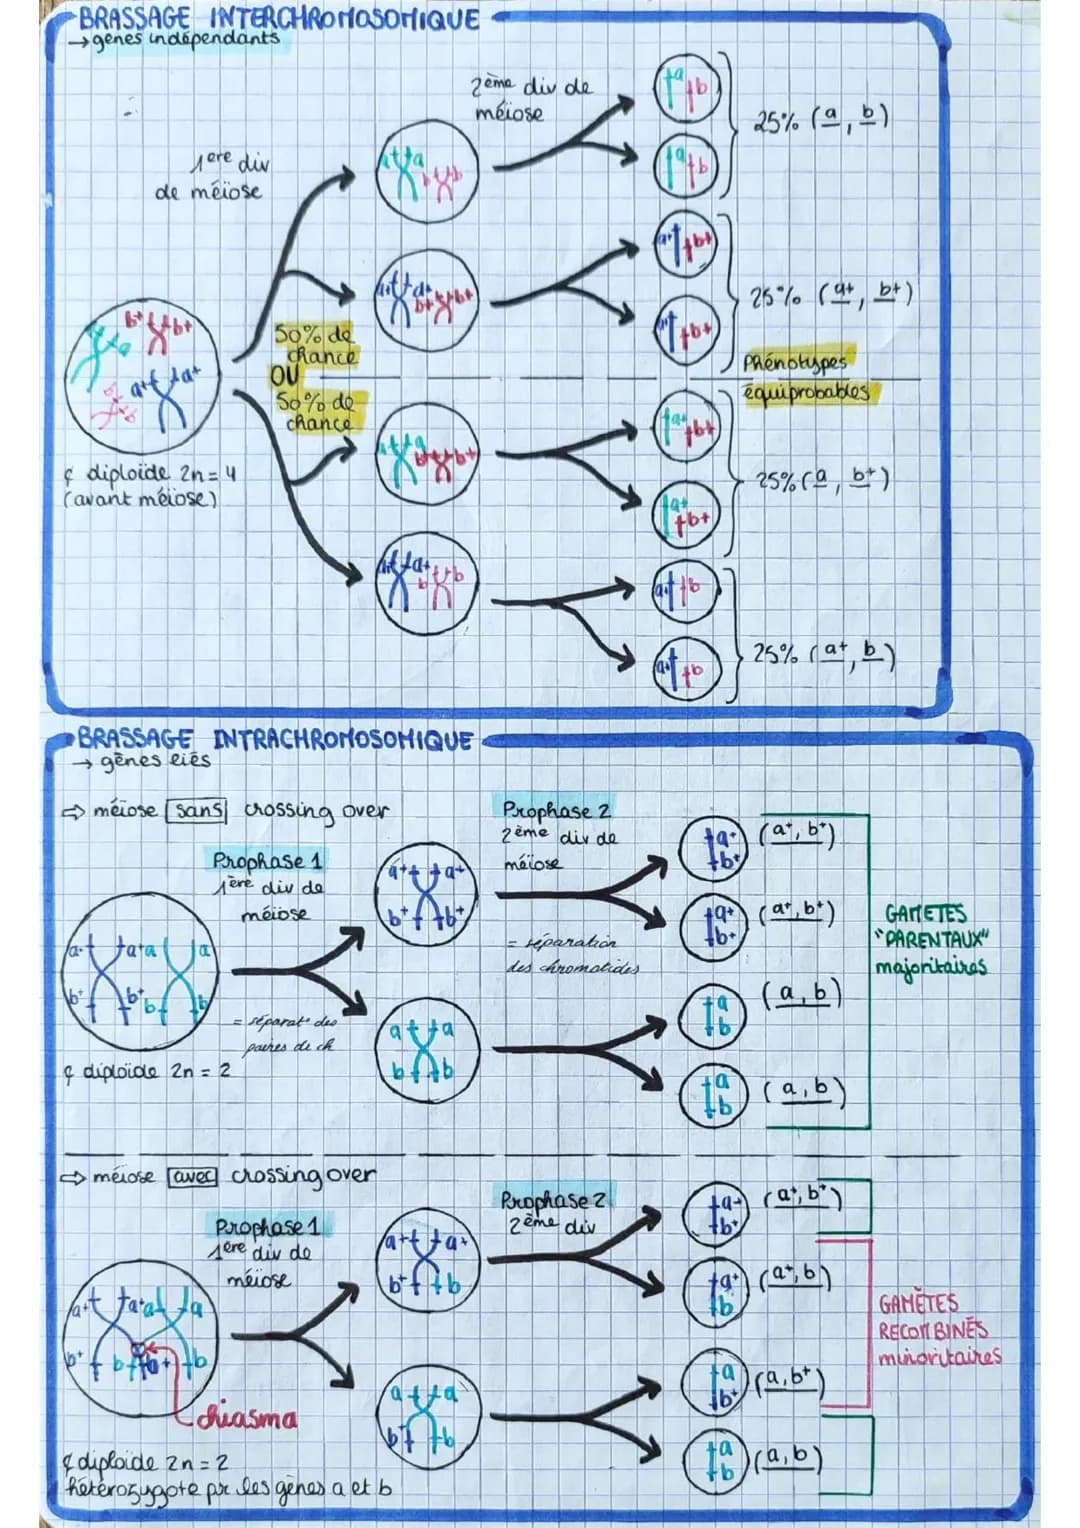 BRASSAGE INTERCHROMOSOMIQUE
→ gènes indépendants
1ere div
de méiose
2ème div de
méiose
a b
25% (a, b)
a b
a a
b b
a+ b+
25% (a+, b+)
a+ b+
a+ a+
b+ b+
b+ b+
a
a+ a+
50% de
chance
OU
50% de
chance
Phénotypes
équiprobables
¢ diploïde 2n = 4
(avant méiose)
a+ b+
a a
b+ b+
25% (a, b+)
a+
b+
a+ a+
b b
a+ b
25% (a+, b)
a+ b
BRASSAGE INTRACHROMOSOMIQUE
→ gènes liés
⇨ méiose sans crossing over
Prophase 1
1ère div de
méiose
= séparat° des
paires de ch
Prophase 2
2ème div de
méiose
= séparation
des chromatides
a+ a+ a a
b+ b+ b b
¢ diploïde 2n = 2
a+ a+
b+ b+
a a
b b
a+
b+
(a+, b+)
a+
b+
(a+, b+)
a
b
(a, b)
a
b
(a, b)
GAMETES
"PARENTAUX"
majoritaires
⇨ méiose avec crossing over
Prophase 1
1ère div de
méiose
Prophase 2
2ème div
a+ a+ a a
b+ b b+ b
chiasma
¢ diploïde 2n = 2
hétérozygote pr les gènes a et b
a+ a+
b+ b
a a
b+ b
a+
b+
(a+, b+)
a+
b
(a+, b)
a
b+
(a, b+)
a
b
(a, b)
GAMÈTES
RECOMBINÉS
minoritaires